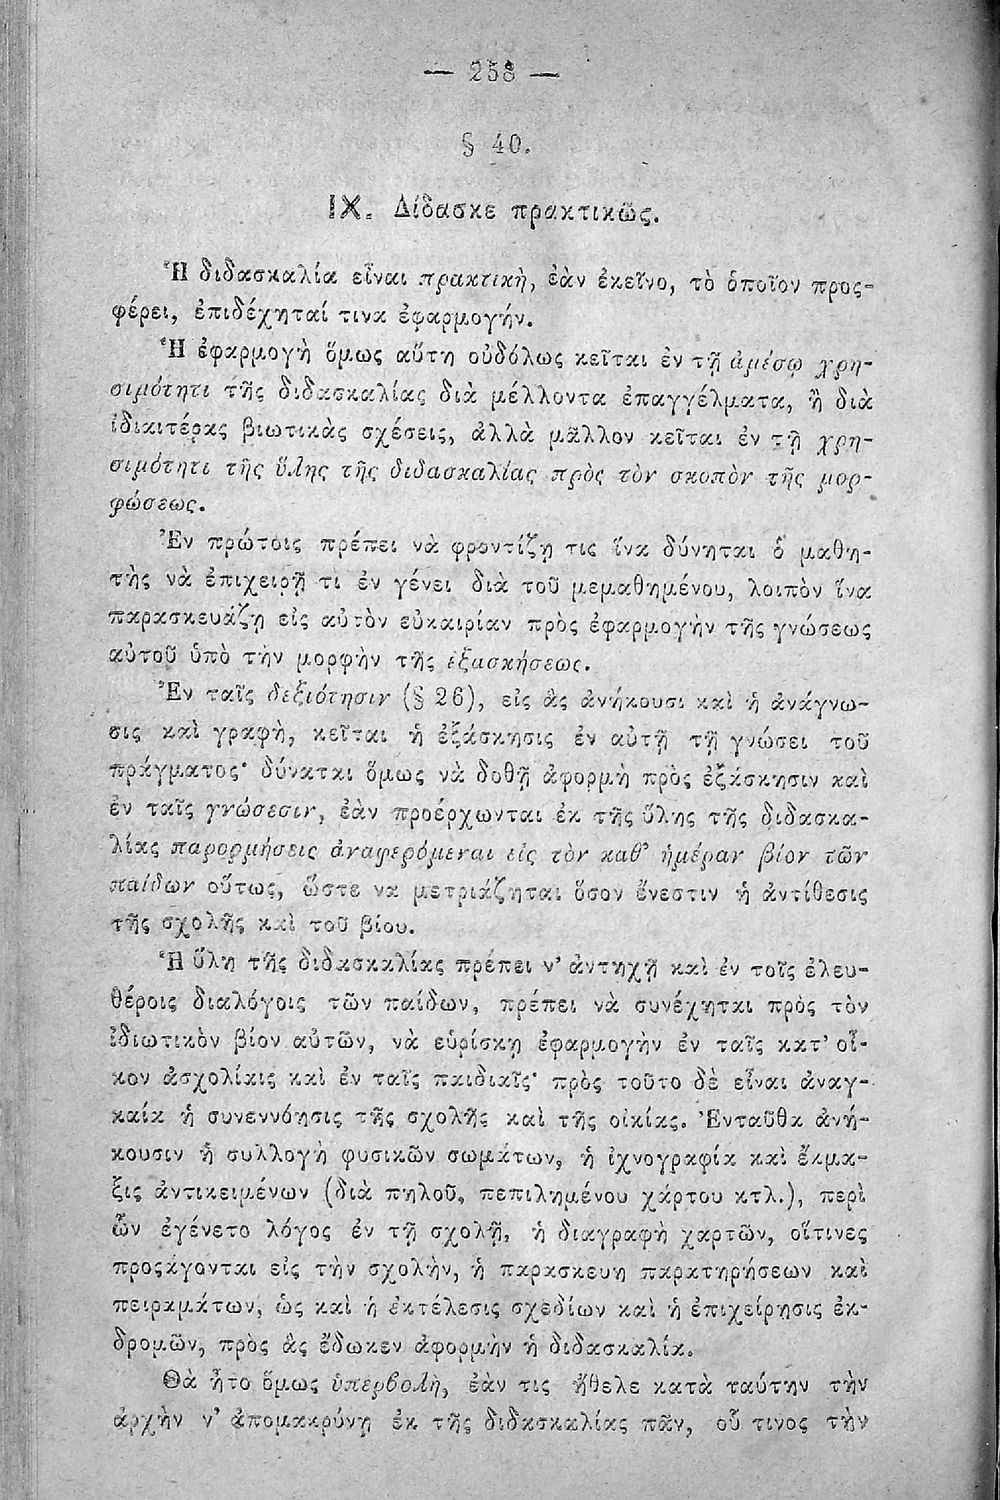 — 258 —
§ 40.
IX. Δίδασκε πρακτικῶς.
Ἡ διδασκαλία εἶναι πρακτικὴ, ἐὰν ἐκεῖνο, τὸ ὁποῖον προς-
φέρει, ἐπιδέχηταί τινα ἐφαρμογήν.
Ἡ ἐφαρμογὴ ὅμως αὕτη οὐδόλως κεῖται ἐν τῇ ἀμέσῳ χρη-
σιμότητι τῆς διδασκαλίας διὰ μέλλοντα ἐπαγγέλματα, ἢ διὰ
ἰδιαιτέρας βιωτικὰς σχέσεις, ἀλλὰ μᾶλλον κεῖται ἐν τῇ χρη-
σιμότητι τῆς ὕλης τῆς διδασκαλίας πρὸς τὸν σκοπὸν τῆς μορ-
φώσεως.
Ἐν πρώτοις πρέπει νὰ φροντίζῃ τις ἵνα δύνηται ὁ μαθη-
τὴς νὰ ἐπιχειρῇ τι ἐν γένει διὰ τοῦ μεμαθημένου, λοιπὸν ἵνα
παρασκευάζῃ εἰς αὐτὸν εὐκαιρίαν πρὸς ἐφαρμογὴν τῆς γνώσεως
αὐτοῦ ὑπὸ τὴν μορφὴν τῆς ἐξασκήσεως.
Ἐν ταῖς δεξιότησιν (§ 26), εἰς ἃς ἀνήκουσι καὶ ἡ ἀνάγνω-
σις καὶ γραφὴ, κεῖται ἡ ἐξάσκησις ἐν αὐτῇ τῇ γνώσει τοῦ
πράγματος· δύναται ὅμως νὰ δοθῇ ἀφορμὴ πρὸς ἐξάσκησιν καὶ
ἐν ταῖς γνώσεσιν, ἐὰν προέρχωνται ἐκ τῆς ὕλης τῆς διδασκα-
λίας παρορμήσεις ἀναφερόμεναι εἰς τὸν καθ' ἡμέραν βίον τῶν
παίδων οὕτως, ὥστε να μετριάζηται ὅσον ἔνεστιν ἡ ἀντίθεσις
τῆς σχολῆς καὶ τοῦ βίου.
Ἡ ὕλη τῆς διδασκαλίας πρέπει ν' ἀντηχῇ καὶ ἐν τοῖς ἐλευ-
θέροις διαλόγοις τῶν παίδων, πρέπει νὰ συνέχηται πρὸς τὸν
ἰδιωτικὸν βίον αὐτῶν, νὰ εὑρίσκῃ ἐφαρμογὴν ἐν ταῖς κατ' οἶ-
κον ἀσχολίαις καὶ ἐν ταῖς παιδιαῖς· πρὸς τοῦτο δὲ εἶναι ἀναγ-
καία ἡ συνεννόησις τῆς σχολῆς καὶ τῆς οἰκίας. Ἐνταῦθα ἀνή-
κουσιν ἡ συλλογὴ φυσικῶν σωμάτων, ἡ ἰχνογραφία καὶ ἔκμα-
ξις ἀντικειμένων (διὰ πηλοῦ, πεπιλημένου χάρτου κτλ.), περὶ
ὧν ἐγένετο λόγος ἐν τῇ σχολῇ, ἡ διαγραφὴ χαρτῶν, οἵτινες
προςάγονται εἰς τὴν σχολὴν, ἡ παρασκευη παρατηρήσεων καὶ
πειραμάτων, ὡς καὶ ἡ ἐκτέλεσις σχεδίων καὶ ἡ ἐπιχείρησις ἐκ-
δρομῶν, πρὸς ἃς ἔδωκεν ἀφορμὴν ἡ διδασκαλία.
Θὰ ἦτο ὅμως ὑπερβολὴ, ἐὰν τις ἤθελε κατὰ ταύτην τὴν
ἀρχὴν ν' ἀπομακρύνῃ ἐκ τῆς διδασκαλίας πᾶν, οὗ τινος τὴν